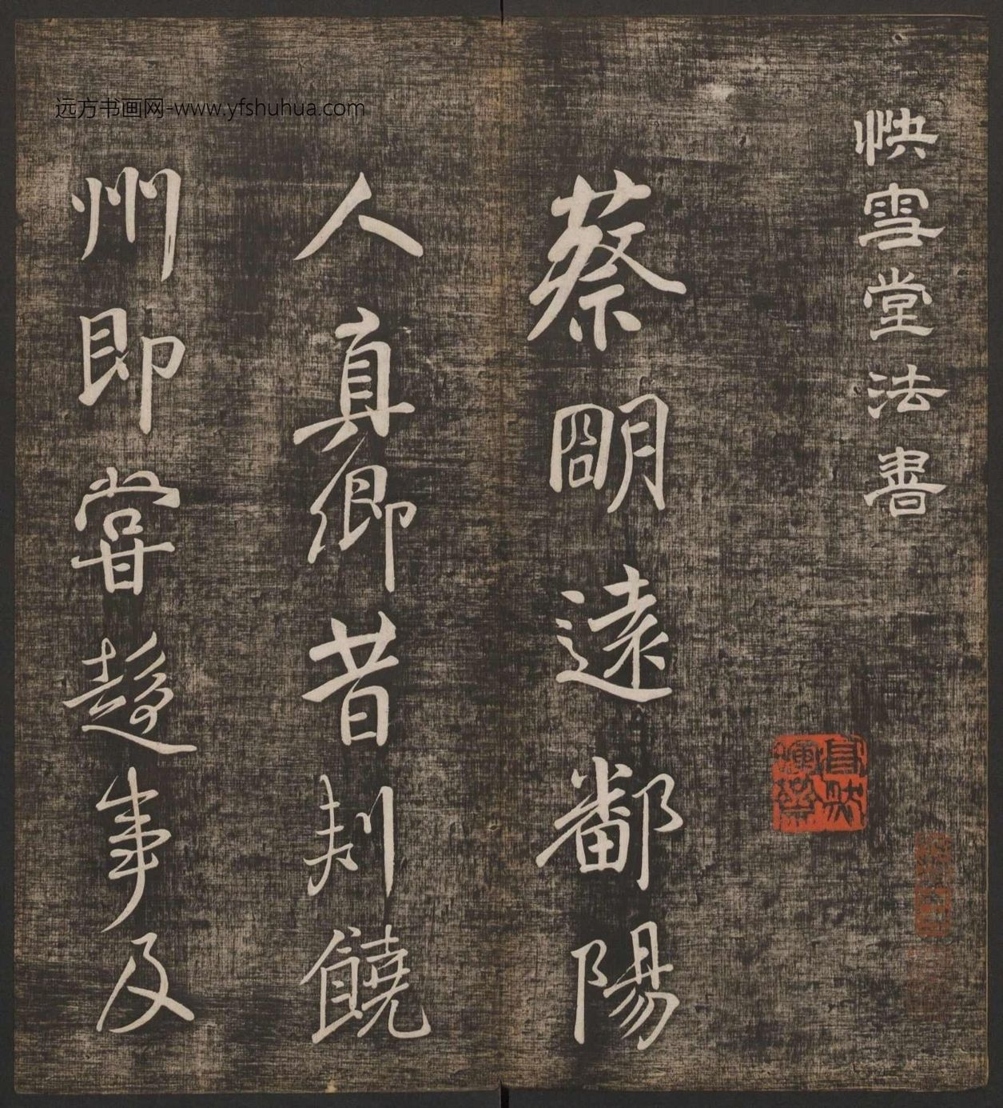 快雪堂法書
蔡明遠鄱陽
人真卿昔刺饒
州即嘗趍事及
远方书画网-www.yfshuhua.com